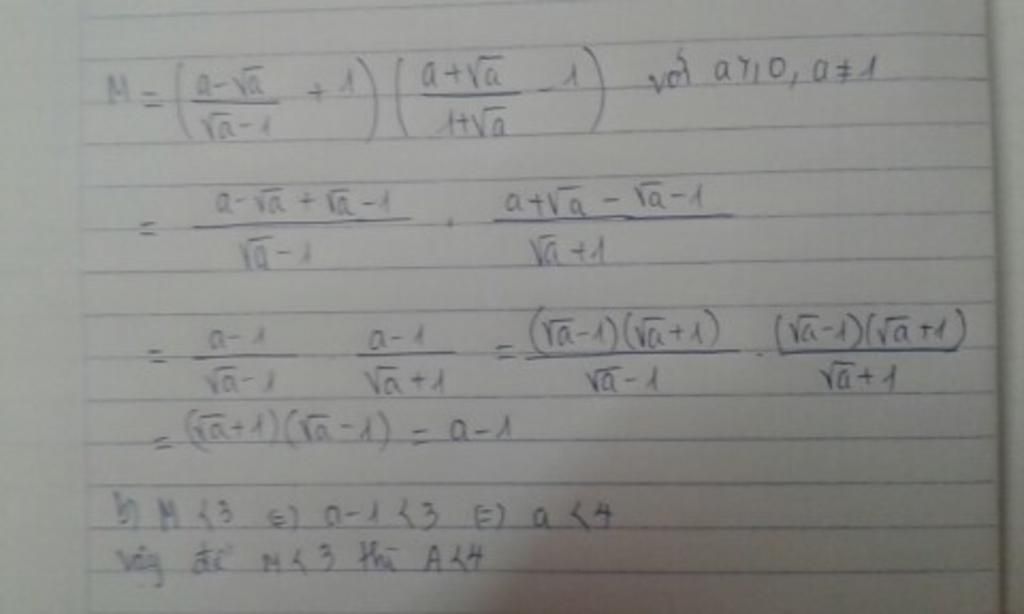 M = (a-√a/√a-1 + 1)(a+√a/1+√a - 1) với a ≥ 0, a ≠ 1
= a-√a+√a-1/√a-1 . a+√a-√a-1/√a+1
= a-1/√a-1 a-1/√a+1 = (√a-1)(√a+1)/√a-1 . (√a-1)(√a+1)/√a+1
= (√a+1)(√a-1) = a-1
b) M < 3 ⇔ a-1 < 3 ⇔ a < 4
Vậy để M < 3 thì A < 4